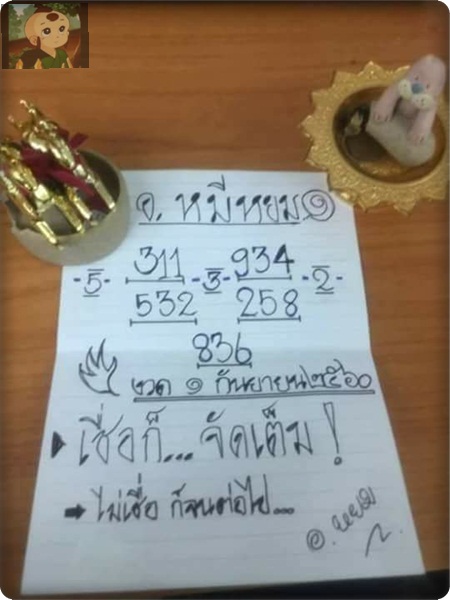 อ. หมีหยม ๑
311 934
-5- -3- -2-
532 258
836
งวด ๑ กันยายน ๒๕๖๐
เชื่อก็... จัดเต็ม!
ไม่เชื่อ ก็จนต่อไป...
อ. หยม